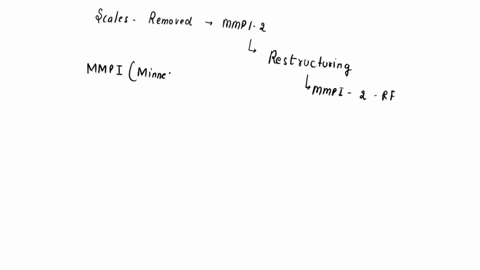 Scales - Removed → MMPI-2
↳ Restructuring
MMPI (Minne
↳ MMPI - 2 - RF